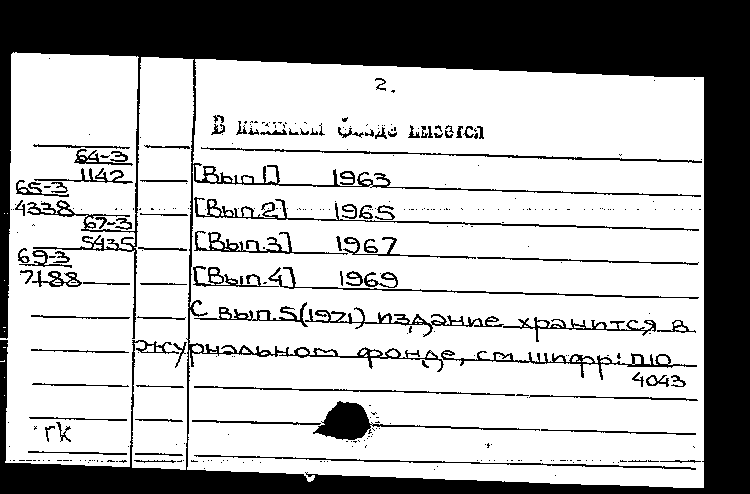 2.
В книжном фонде имеется
64-3
1142 [Вып.1] 1963
65-3
4338 [Вып.2] 1965
67-3
5435 [Вып.3] 1967
69-3
7188 [Вып.4] 1969
С вып.5(1971) издание хранится в
журнальном фонде, см.шифр: П10
4043
rk